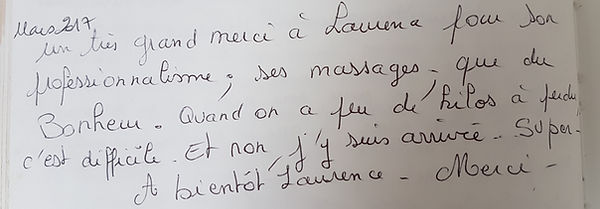 Mars 217
un très grand merci à Laurena pour son
professionnalisme, ses massages, que du
Bonheur. Quand on a peu de kilos à perdre
c'est difficile. Et non, j'y suis arrivée. Super.
A bientôt Laurence - Merci -